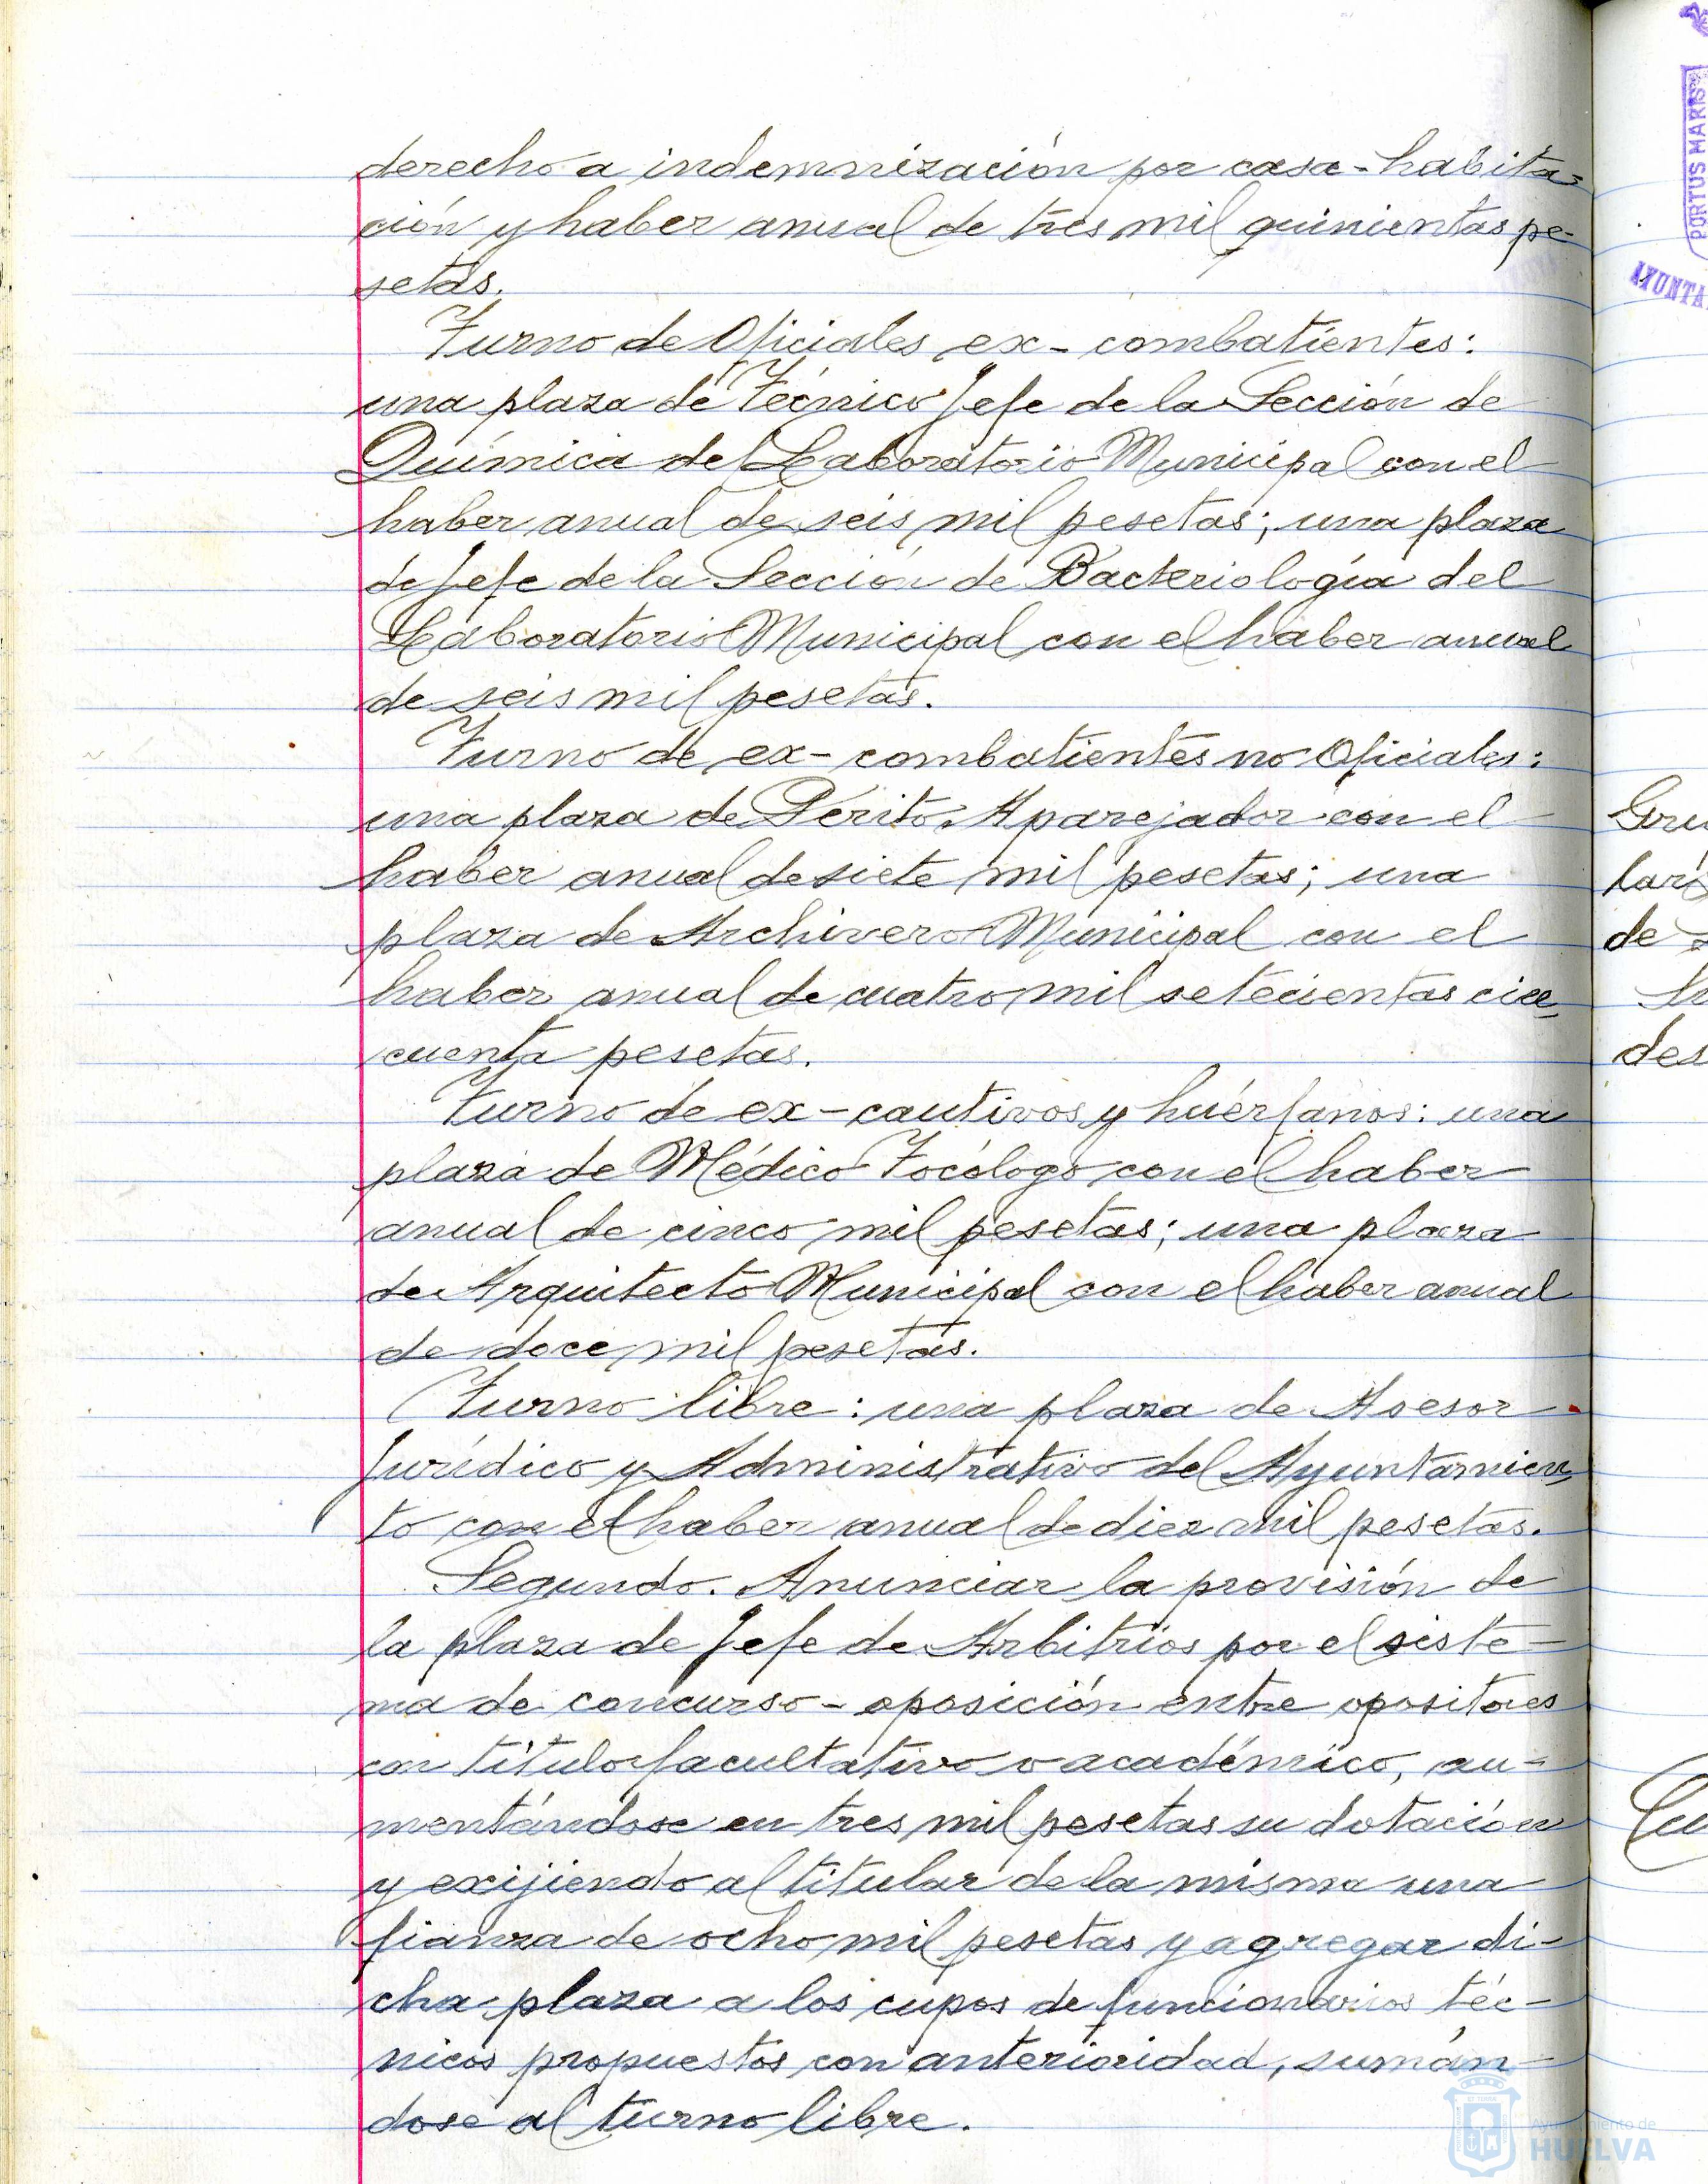 derecho a indemnización por casa-habita-
ción y haber anual de tres mil quinientas pe-
setas.
Turno de Oficiales ex-combatientes:
una plaza de Técnico Jefe de la Sección de
Química del Laboratorio Municipal con el
haber anual de seis mil pesetas; una plaza
de Jefe de la Sección de Bacteriología del
Laboratorio Municipal con el haber anual
de seis mil pesetas.
Turno de ex-combatientes no Oficiales:
una plaza de Perito Aparejador con el
haber anual de siete mil pesetas; una
plaza de Archivero Municipal con el
haber anual de cuatro mil setecientas cin-
cuenta pesetas.
Turno de ex-cautivos y huérfanos: una
plaza de Médico Tocólogo con el haber
anual de cinco mil pesetas; una plaza
de Arquitecto Municipal con el haber anual
de doce mil pesetas.
Turno libre: una plaza de Asesor
Jurídico y Administrativo del Ayuntamien-
to con el haber anual de diez mil pesetas.
Segundo. Anunciar la provisión de
la plaza de Jefe de Arbitrios por el siste-
ma de concurso-oposición entre opositores
con título facultativo o académico, au-
mentándose en tres mil pesetas su dotación
y exijiendo al titular de la misma una
fianza de ocho mil pesetas y agregar di-
cha plaza a los cupos de funcionarios téc-
nicos propuestos con anterioridad, sumán-
dose al turno libre.
PORTUS MARIS
AYUNTA
de
des
Ayuntamiento de
HUELVA